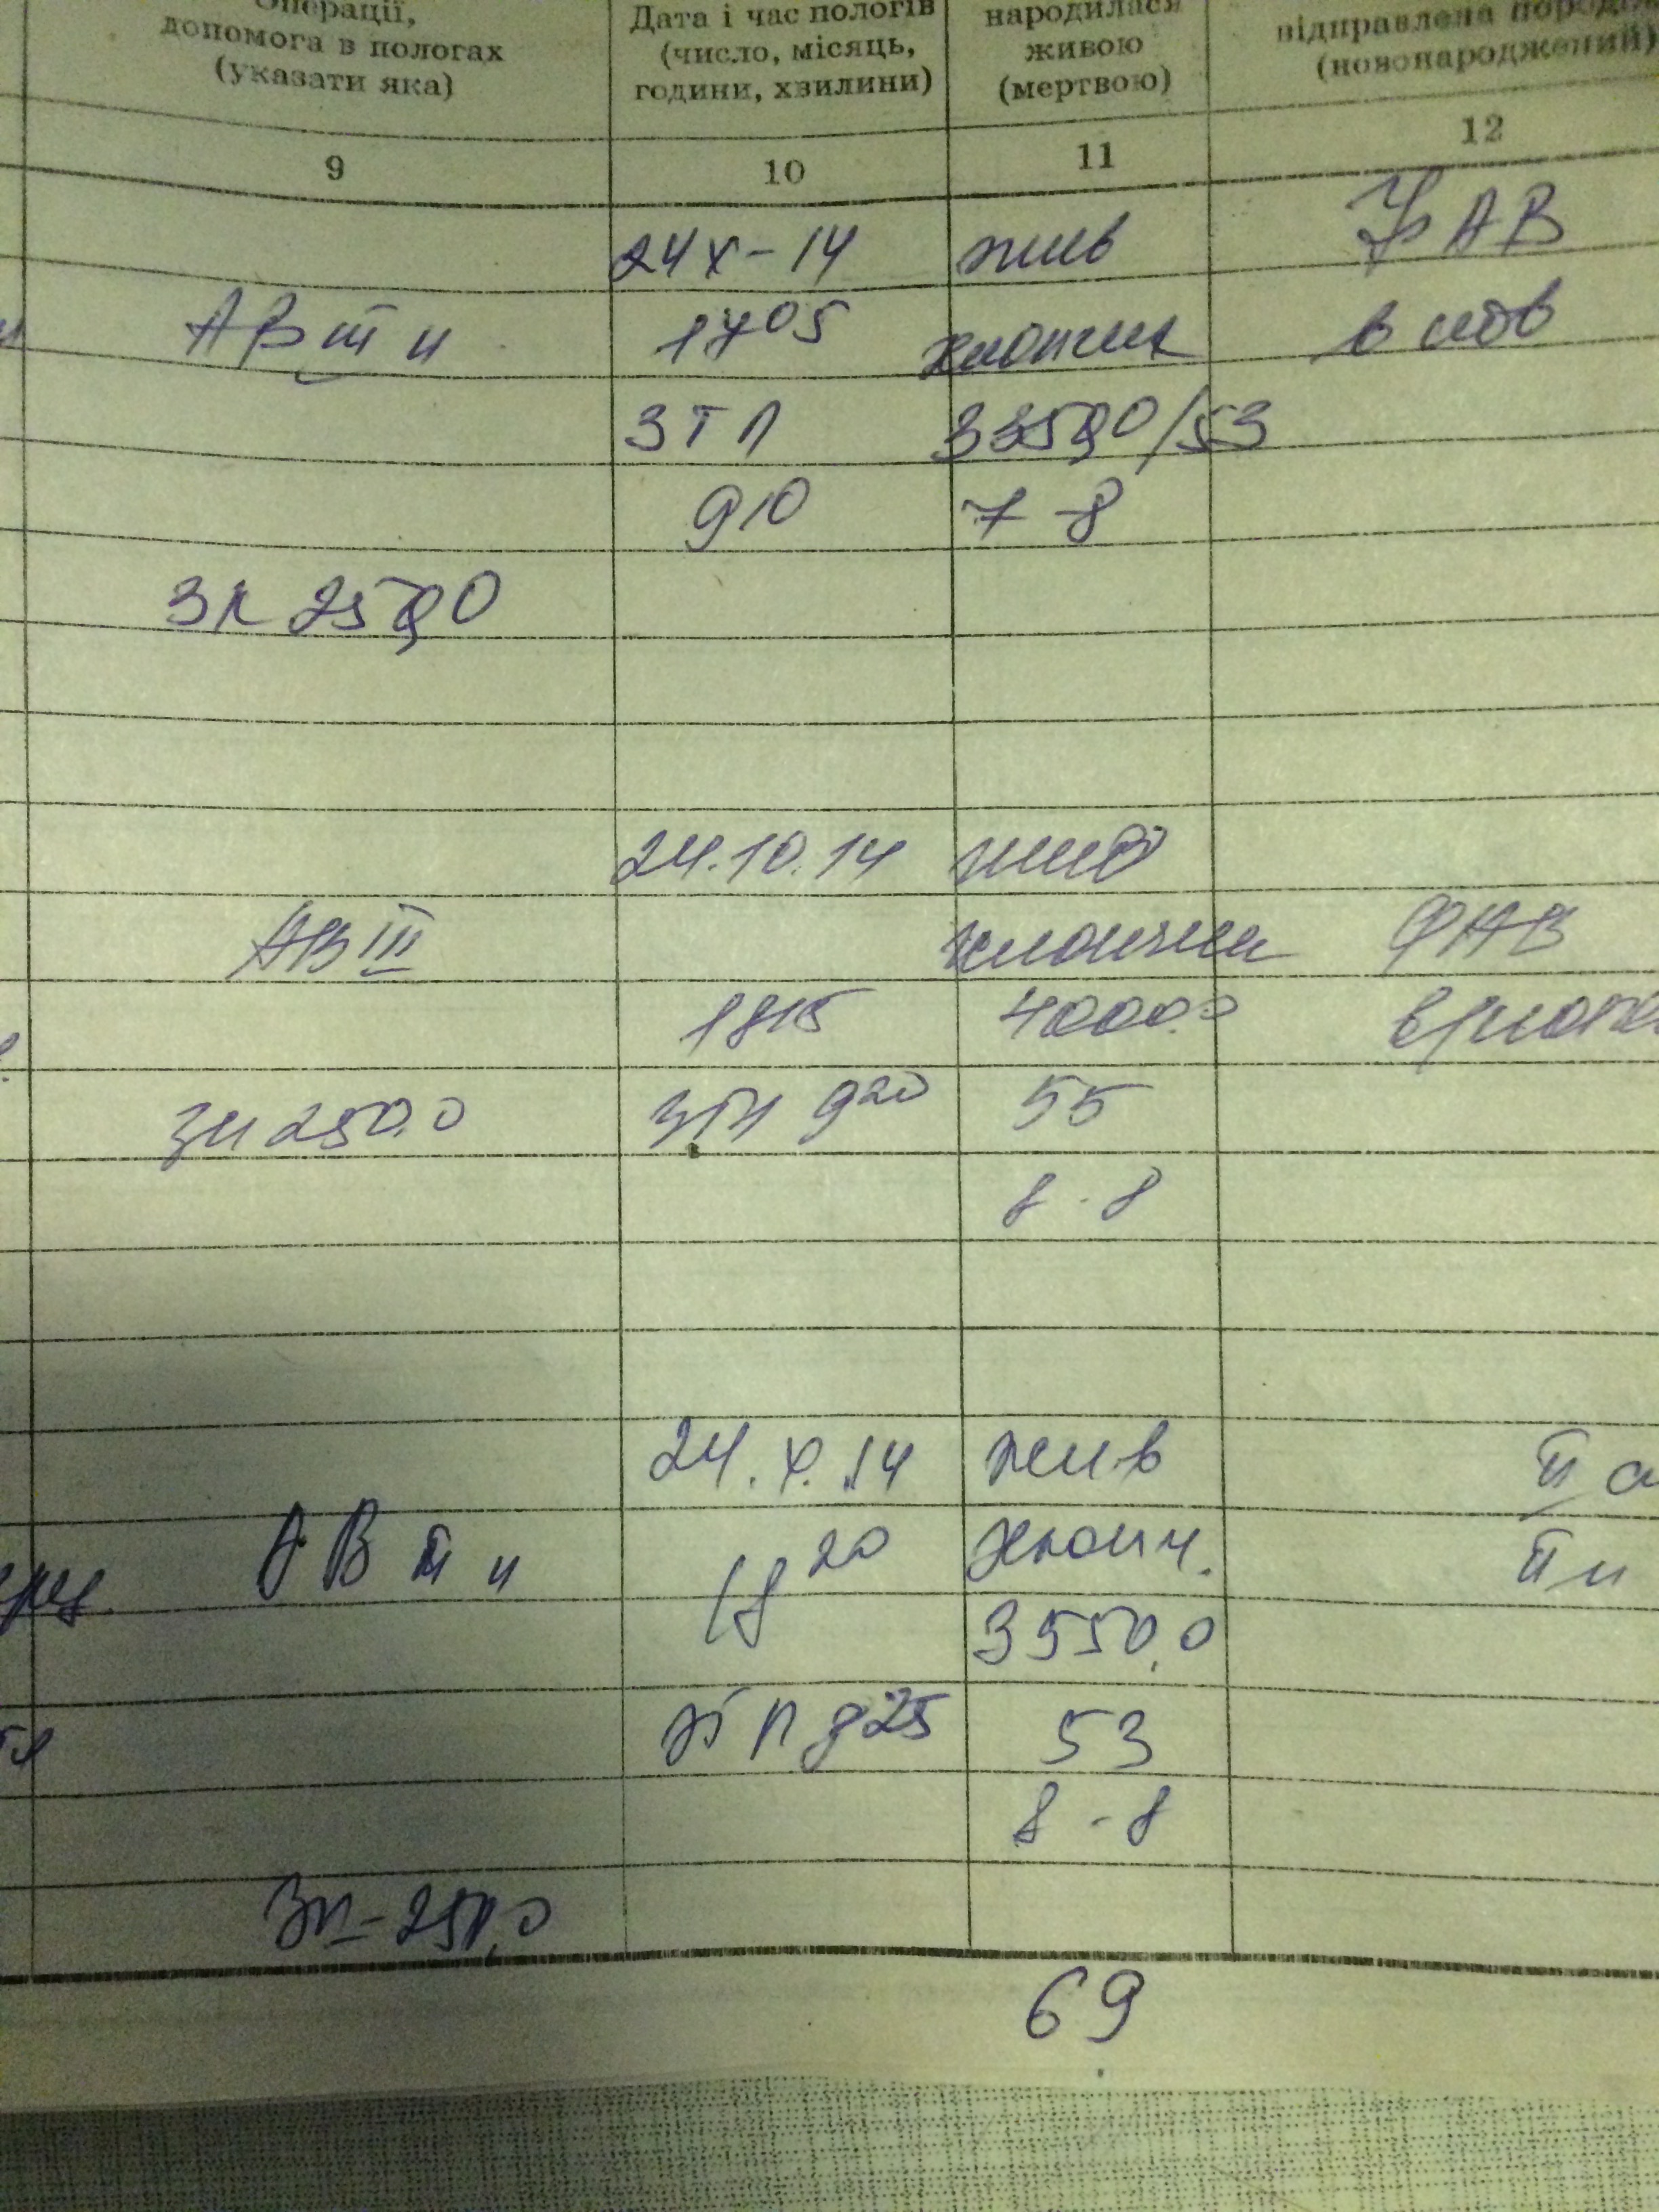 Операції, допомога в пологах (указати яка)
Дата і час пологів (число, місяць, години, хвилини)
народилася живою (мертвою)
відправлена (новонароджений)
9 10 11 12
24 X - 14 жив ФАВ
АВ ІІІ п 17 05 хлопчик
ЗТП 3350,0/53
9 10 7-8
Зк 250,0
24.10.14 жив
АВ III хлопчик ФАВ
18 15 4000.0
250.0 9 20 55
8-8
24.X.14 жив
АВ 18 20 хлопч.
3550,0
П 8 25 53
8-8
Зп - 250,0
69